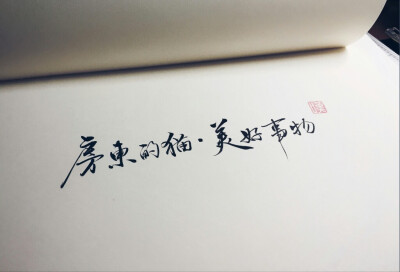 房東的猫·美好事物